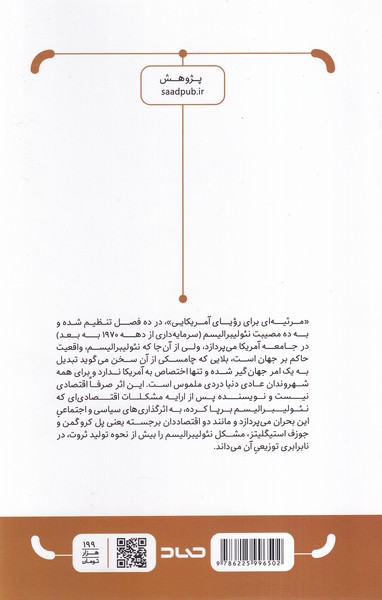 پژوهش
saadpub.ir
«مرثیه‌ای برای رؤیای آمریکایی»، در ده فصل تنظیم شده و
به ده مصیبت نئولیبرالیسم (سرمایه‌داری از دهه ۱۹۷۰ به بعد)
در جامعه آمریکا می‌پردازد، ولی از آن‌جا که نئولیبرالیسم، واقعیت
حاکم بر جهان است، بلایی که چامسکی از آن سخن می‌گوید تبدیل
به یک امر جهان‌گیر شده و تنها اختصاص به آمریکا ندارد و برای همه
شهروندان عادی دنیا دردی ملموس است. این اثر صرفاً اقتصادی
نیست و نویسنده پس از ارایه مشکلات اقتصادی‌ای که
نئولیبرالیسم برپا کرده، به اثرگذاری‌های سیاسی و اجتماعیِ
این بحران می‌پردازد و مانند دو اقتصاددان برجسته یعنی پل کروگمن و
جوزف استیگلیتز، مشکل نئولیبرالیسم را بیش از نحوه تولید ثروت، در
نابرابری توزیعیِ آن می‌داند.
۱۹۹
هزار
تومان
صاد
9 786225 996502